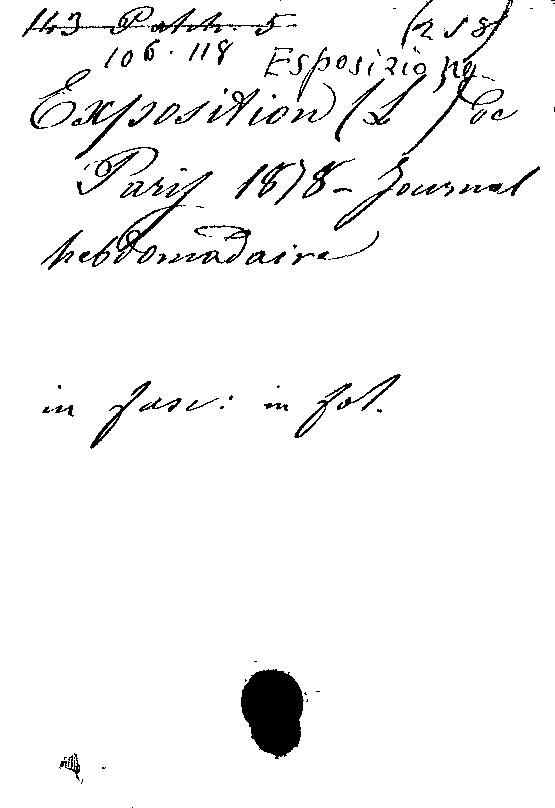 143 Palch. 5 (258)
106.118 Esposizione
Exposition (L') de
Paris 1878 - Journal
hebdomadaire
in fasc: in fol.